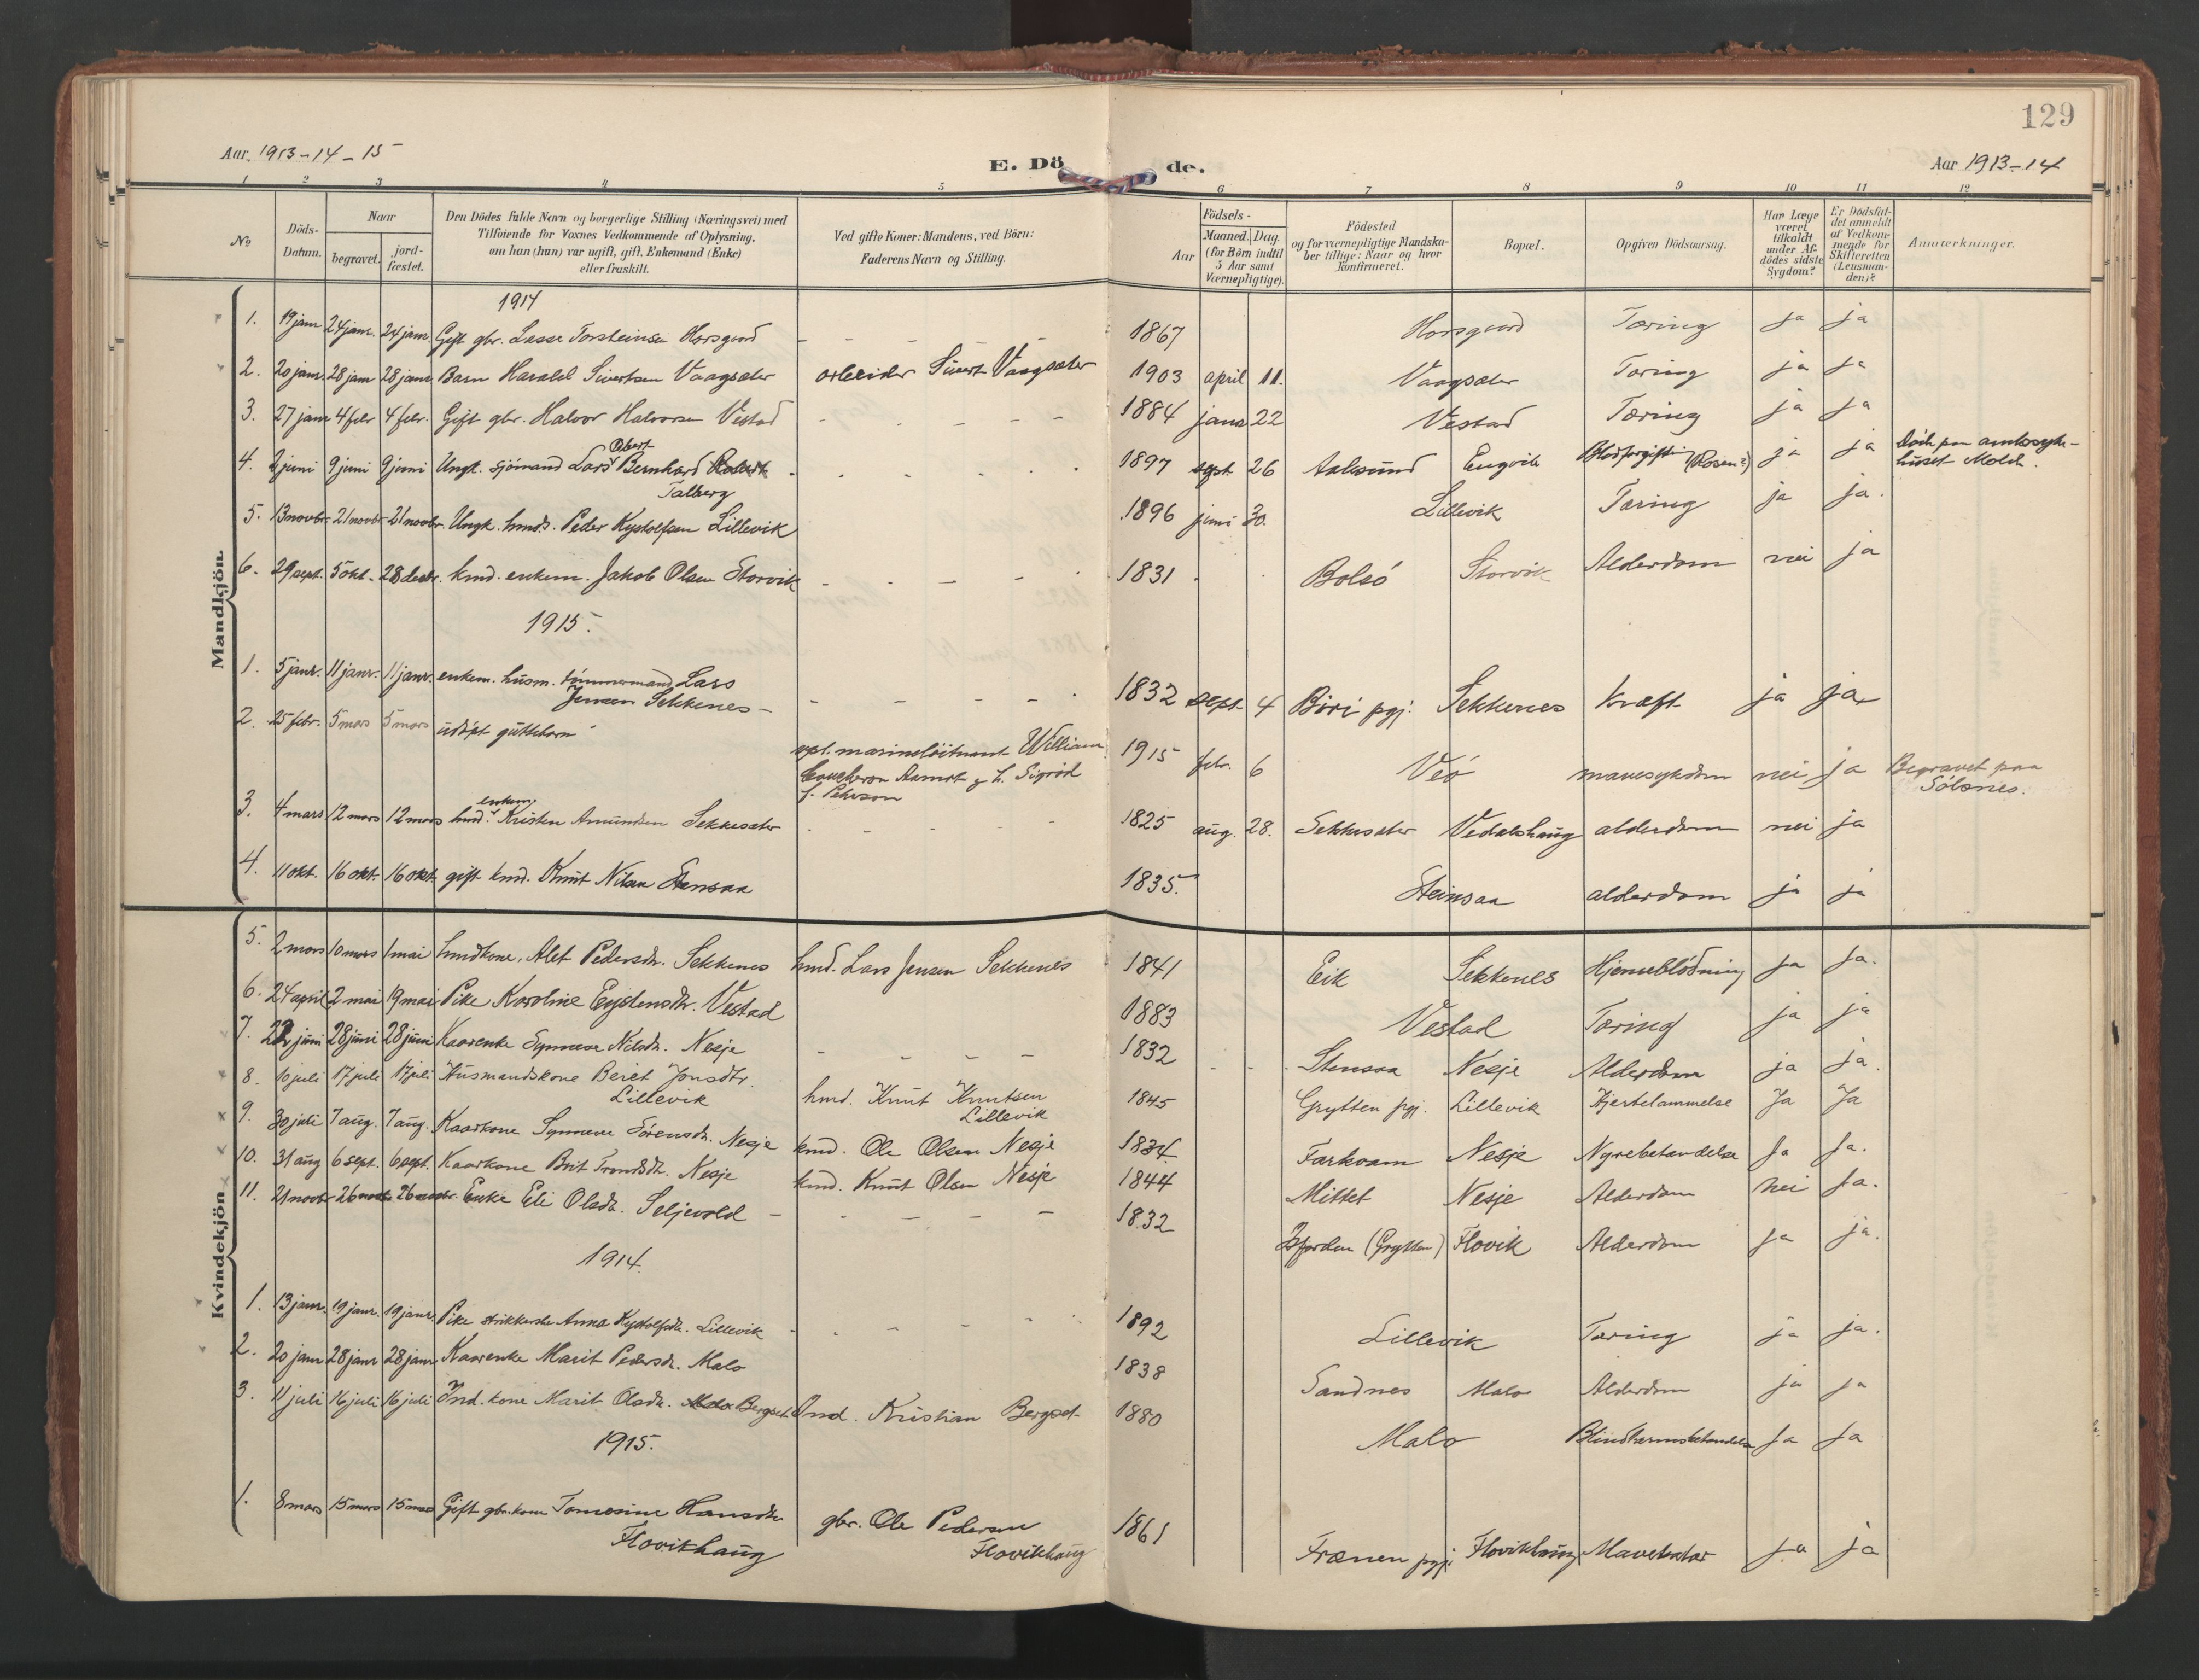 129
Aar 1913-14-15
E. Döde.
Aar 1913-14
1 2 3 4 5 6 7 8 9 10 11 12
No
Döds-Datum.
Naar
begravet.
jord-fæstet.
Den Dödes fulde Navn og borgerlige Stilling (Næringsvei) med
Tilföiende for Voxnes Vedkommende af Oplysning,
om han (hun) var ugift, gift, Enkemand (Enke)
eller fraskilt.
Ved gifte Koner: Mandens, ved Börn:
Faderens Navn og Stilling.
Aar
Födsels-
Maaned. Dag.
(for Börn indtil
5 Aar samt
Værnepligtige).
Födested
og for værnepligtige Mandska-
ber tillige: Naar og hvor
konfirmeret.
Bopæl.
Opgiven Dödsaarsag.
Har Læge
været
tilkaldt
under Af-
dödes sidste
Sygdom?
Er Dödsfal-
det anmeldt
af Vedkom-
mende for
Skifteretten
(Lensman-
den)?
Anmærkninger.
Mandkjön.
1914
1. 19 janr 24 janr. 24 janr. Gift gbr. Lasse Torsteinsen Horsgard - - - 1867 Horsgard Tæring ja ja
2. 20 janr. 28 janr 28 janr Barn Harald Sivertsen Vaagsæter arbeider Sivert Vaagsæter 1903 april 11. Vaagsæter Tæring ja ja
3. 27 janr 4 febr 4 febr. Gift gbr. Halvor Halvorsen Vestad - - - 1884 janr 22 Vestad Tæring ja ja
4. 2 juni 9 juni 9 juni Ungk. sjömand Lars Obert Bernhard Robert Talberg 1897 sept 26 Aalsund Engvik Blodforgiftning (Rosen?) ja ja Död paa amtssyke-
huset Molde.
5. 13 novbr. 21 novbr 21 novbr. Ungk. hmds. Peder Kystolfsen Lillevik 1896 juni 30. Lillevik Tæring ja ja.
6. 29 sept. 5 okt. 28 desbr. kmd. enkem. Jakob Olsen Storvik - - - 1831 Bolsö Storvik Alderdom nei ja
1915.
1. 5 janr. 11 janr. 11 janr. enkem. husm. tömmermand Lars
Jensen Sekkenes - - - 1832 sept. 4 Biri pgj. Sekkenes kræft ja ja
2. 25 febr. 5 mars 5 mars udöpt guttebarn marinelöitnant William
Aamot g. h. Sigrid
f. Peterson 1915 febr. 6 Veö mavesykdom nei ja Begravet paa
Sölsnes.
3. 4 mars 12 mars 12 mars hmd. enkem Kristen Amundsen Sekkesæter - - - 1825 aug. 28. Sekkesæter Vedalshaug alderdom nei ja
4. 11 okt. 16 okt. 16 okt. gift kmd. Knut Nilsen Stensaa 1835. Steinsaa alderdom ja ja
Kvindekjön
5. 2 mars 10 mars 1 mai hmdkone. Alet Pedersdr. Sekkenes hmd. Lars Jensen Sekkenes 1841 Eik Sekkenes Hjerneblödning ja ja.
6. 24 april 2 mai 19 mai Pike Karoline Eystensdtr. Vestad 1883 Vestad Tæring ja ja
7. 22 juni 28 juni 28 juni Kaarenke Synneve Nilsdr. Nesje - - - 1832 Stensaa Nesje Alderdom ja ja.
8. 10 juli 17 juli 17 juli Husmandskone Beret Jonsdtr.
Lillevik hmd. Knut Knutsen
Lillevik 1845 Grytten pgj. Lillevik Hjertelammelse Ja Ja
9. 30 juli 7 aug. 7 aug. Kaarkone Synneve Sörensdr. Nesje kmd. Ole Olsen Nesje 1834 Farkvam Nesje Nyrebetændelse Ja Ja.
10. 31 aug 6 sept. 6 sept. Kaarkone Brit Trondsdtr. Nesje kmd. Knut Olsen Nesje 1844 Mittet Nesje Alderdom nei Ja.
11. 21 novbr 26 novbr 26 novbr. Enke Eli Olsdr. Seljevold - - - 1832 Isfjorden (Grytten) Flovik Alderdom Ja ja.
1914.
1. 13 janr. 19 janr. 19 janr. Pike strikkerske Anna Kystolfsdr. Lillevik - - - 1892 Lillevik Tæring ja ja.
2. 20 janr 28 janr 28 janr Kaarenke Marit Pedersdr. Malo 1838 Sandnes Malo Alderdom ja ja
3. 11 juli 16 juli 16 juli Ind. kone Marit Olsdr. Malo Bergset Ind. Kristian Bergset 1880 Malo Blindtarmsbetændelse Ja Ja
1915.
1. 8 mars 15 mars 15 mars Gift gbr.kone Tomasine Hansdtr
Flovikhaug gbr. Ole Pedersen
Flovikhaug 1861 Frænen pgj. Flovikhaug Mavekatar ja ja